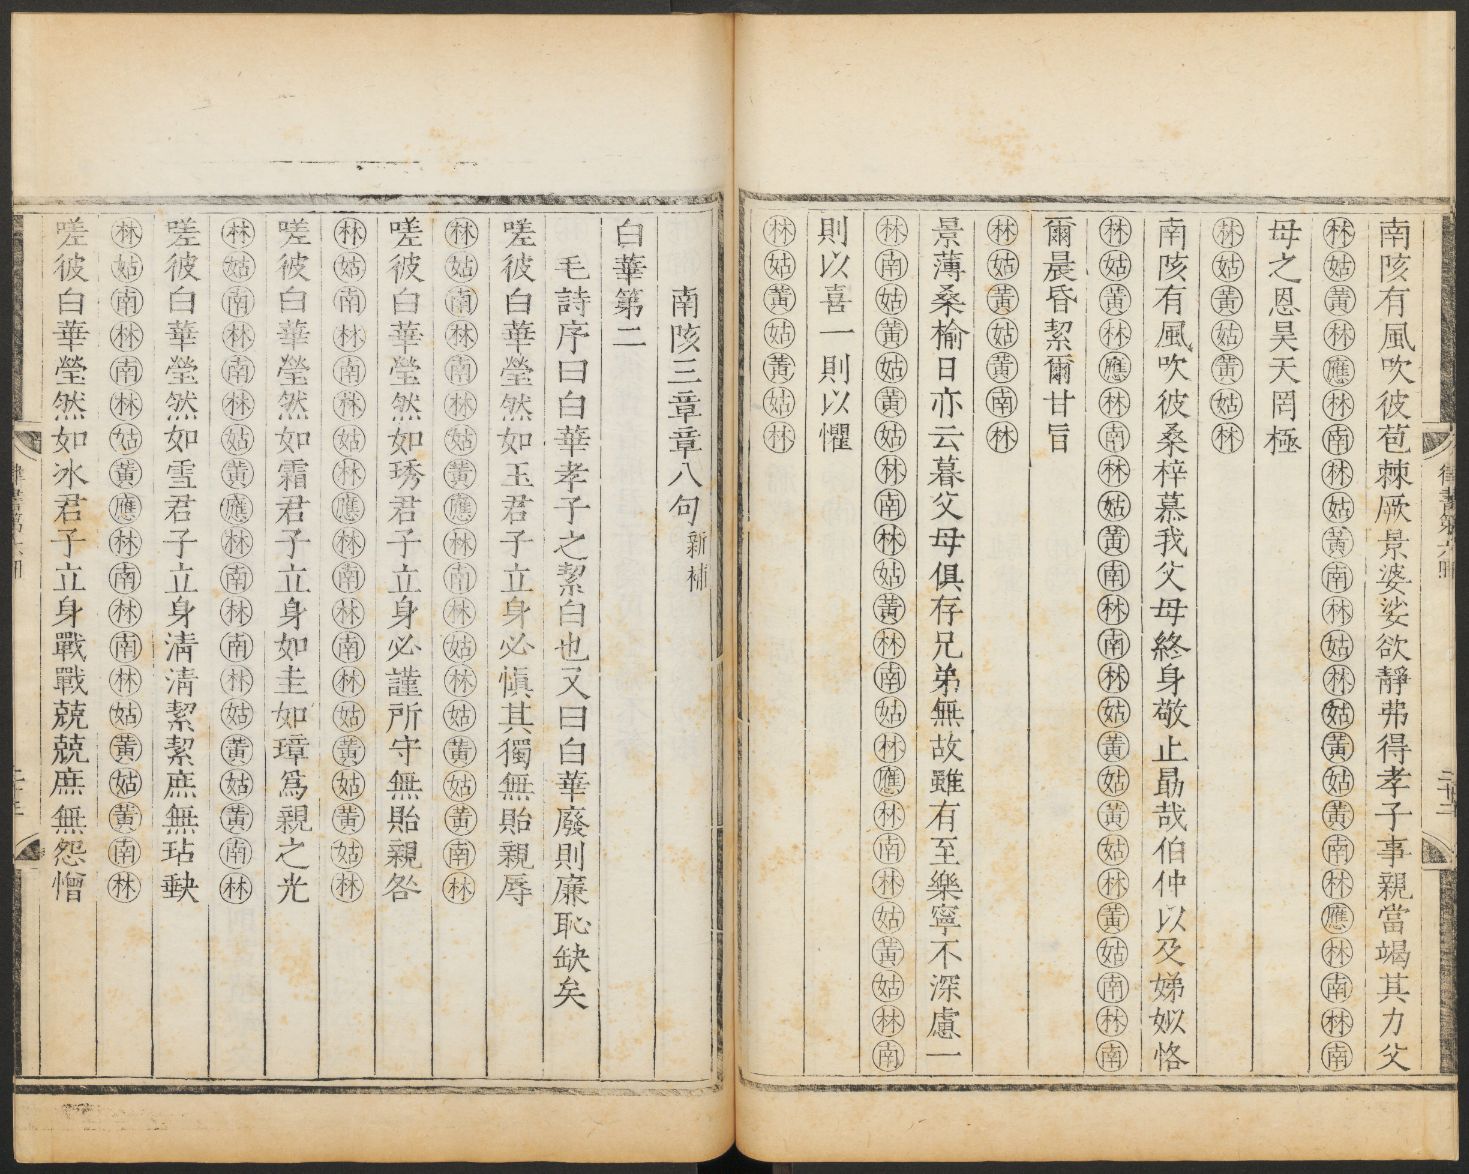 南陔有風吹彼苞棘厥景婆娑欲靜弗得孝子事親當竭其力父
林姑黃林應林南林姑黃南林姑林姑黃姑黃南林應林南林南
母之恩昊天罔極
林姑黃姑黃姑林
南陔有風吹彼桑梓慕我父母終身敬止勗哉伯仲以及娣姒恪
林姑黃林應林南林姑黃南林南林姑黃姑黃姑林黃姑南林南
爾晨昏絜爾甘旨
林姑黃姑黃南林
景薄桑榆日亦云暮父母俱存兄弟無故雖有至樂寧不深慮一
林南姑黃姑黃姑林南林姑黃林南姑林應林南林姑黃姑林南
則以喜一則以懼
林姑黃姑黃姑林
南陔三章章八句新補
白華第二
毛詩序曰白華孝子之絜白也又曰白華廢則廉恥缺矣
嗟彼白華瑩然如玉君子立身必慎其獨無貽親辱
林姑南林南林姑黃應林南林姑林姑黃姑黃南林
嗟彼白華瑩然如琇君子立身必謹所守無貽親咎
林姑南林南林姑林應林南林南林姑黃姑黃姑林
嗟彼白華瑩然如霜君子立身如圭如璋為親之光
林姑南林南林姑黃應林南林南林姑黃姑黃南林
嗟彼白華瑩然如雪君子立身清清絜絜庶無玷缺
林姑南林南林姑黃應林南林南林姑黃姑黃南林
嗟彼白華瑩然如冰君子立身戰戰兢兢庶無怨憎